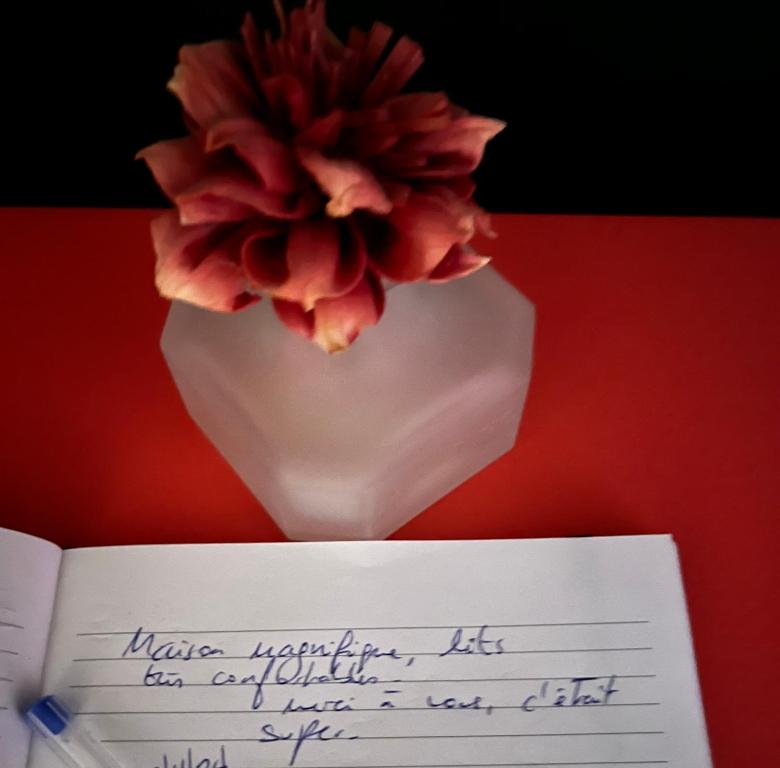 Maison magnifique, lits
très confortables
merci à vous, c'était
super.